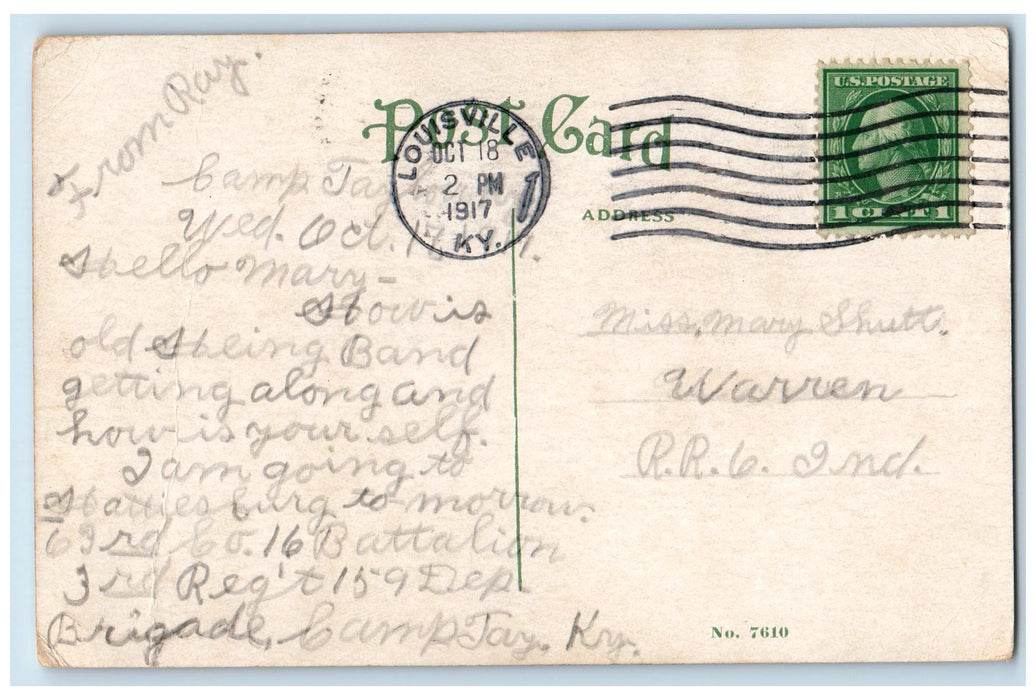 From Ray.
Post Card
LOUISVILLE
OCT 18
2 PM
1917
KY.
U.S. POSTAGE
1 CENT 1
ADDRESS
Camp
Wed. Oct. 17
Hello Mary-
How is
old Heing Band
getting along and
how is your self.
I am going to
Hattiesburg to-morrow.
63rd Co. 16 Battalion
3rd Reg't 159 Dep
Brigade, Camp Tay. Ky.
Miss, Mary Shutt.
Warren
R.R. 6. Ind.
No. 7610